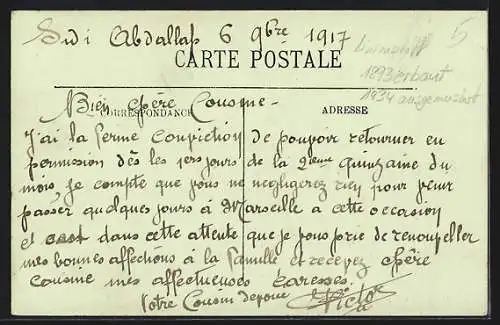 Sidi Abdallah 6 9bre 1917
CARTE POSTALE
5
1893 erbaut
1934 ausgemustert
Bien Chère Cousine -
CORRESPONDANCE
ADRESSE
J'ai la ferme conviction de pouvoir retourner en
permission dès les 1ers jours de la 2eme quinzaine du
mois, je compte que vous ne negligerez rien pour venir
passer quelques jours à Marseille a cette occasion
et dans cette attente que je vous prie de renouveller
mes bonnes affections à la famille et recevez chère
cousine mes affectueuses caresses.
Votre Cousin devoué Victor